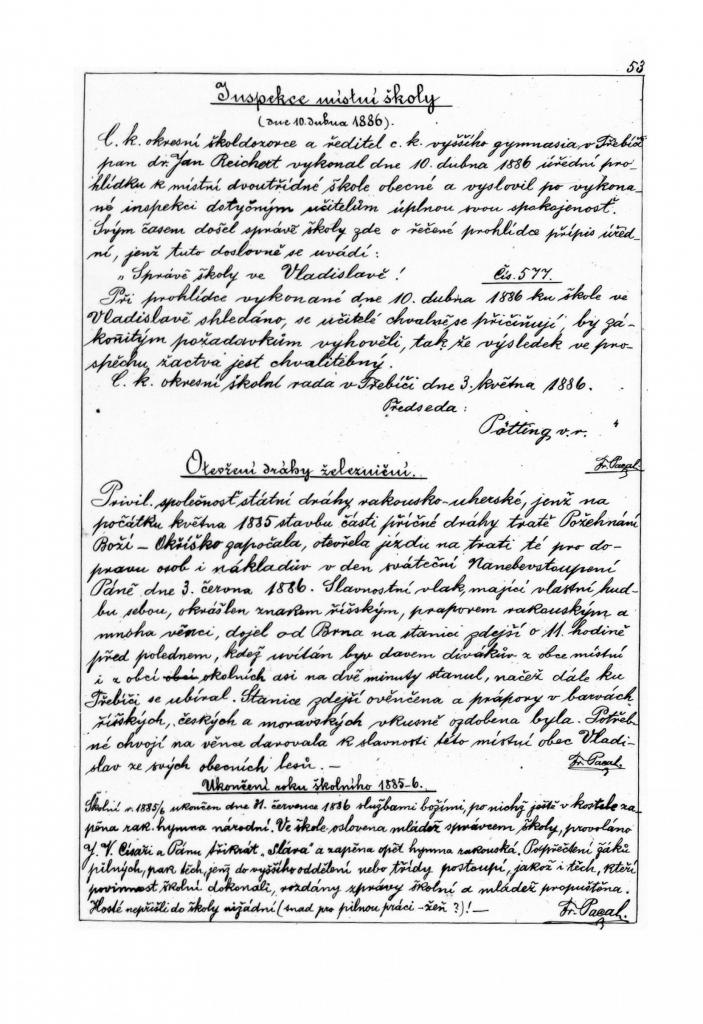 53
Inspekce místní školy
(dne 10. dubna 1886).
C. k. okresní školdozorce a ředitel c. k. vyššího gymnasia v Třebíči
pan dr. Jan Reichert vykonal dne 10. dubna 1886 úřední pro-
hlídku k místní dvoutřídné škole obecné a vyslovil po vykona-
né inspekci dotyčným učitelům úplnou svou spokojenosť.
Svým časem došel správě školy zde o řečené prohlídce přípis úřed-
ní, jenž tuto doslovně se uvádí:
„Správě školy ve Vladislavě! Čís. 577.
Při prohlídce vykonané dne 10. dubna 1886 ku škole ve
Vladislavě shledáno, se učitelé chvalně se přičiňují, by zá-
konitým požadavkům vyhověli, tak že výsledek ve pro-
spěchu žactva jest chvalitebný.
C. k. okresní školní rada v Třebíči dne 3. května 1886.
Předseda:
Pötting v. r. "
Fr. Pazal.
Otevření dráhy železniční.
Privil. společnosť státní dráhy rakousko-uherské, jenž na
počátku května 1885 stavbu části příčné dráhy tratě Požehnání
Boží – Okříško započala, otevřela jízdu na trati té pro do-
pravu osob i nákladův v den sváteční Nanebevstoupení
Páně dne 3. června 1886. Slavnostní vlak, mající vlastní hud-
bu sebou, okrášlen znakem říšským, praporem rakouským a
mnoha věnci, dojel od Brna na stanici zdejší o 11. hodině
před polednem, kdež uvítán byv davem divákův z obce místní
i z obcí obcí okolních asi na dvě minuty stanul, načež dále ku
Třebíči se ubíral. Stanice zdejší ověnčena a prápory v barvách
říšských, českých a moravských vkusně ozdobena byla. Potřeb-
né chvojí na věnce darovala k slavnosti této místní obec Vladi-
slav ze svých obecních lesů. –
Fr. Pazal.
Ukončení roku školního 1885-6.
Školní r. 1885/6 ukončen dne 31. července 1886 službami božími, po nichž ještě v kostele za-
pěna rak. hymna národní. Ve škole oslovena mládež správcem školy, provoláno
J. V. Císaři a Pánu třikrát „Sláva" a zapěna opět hymna rakouská, Po přečtení žáků
pilných, pak těch, jenž do vyššího oddělení nebo třídy postoupí, jakož i těch, kteří
povinnost školní dokonali, rozdány zprávy školní a mládež propuštěna.
Hosté nepřišli do školy nižádní (snad pro pilnou práci – žeň?)! –
Fr. Pazal.